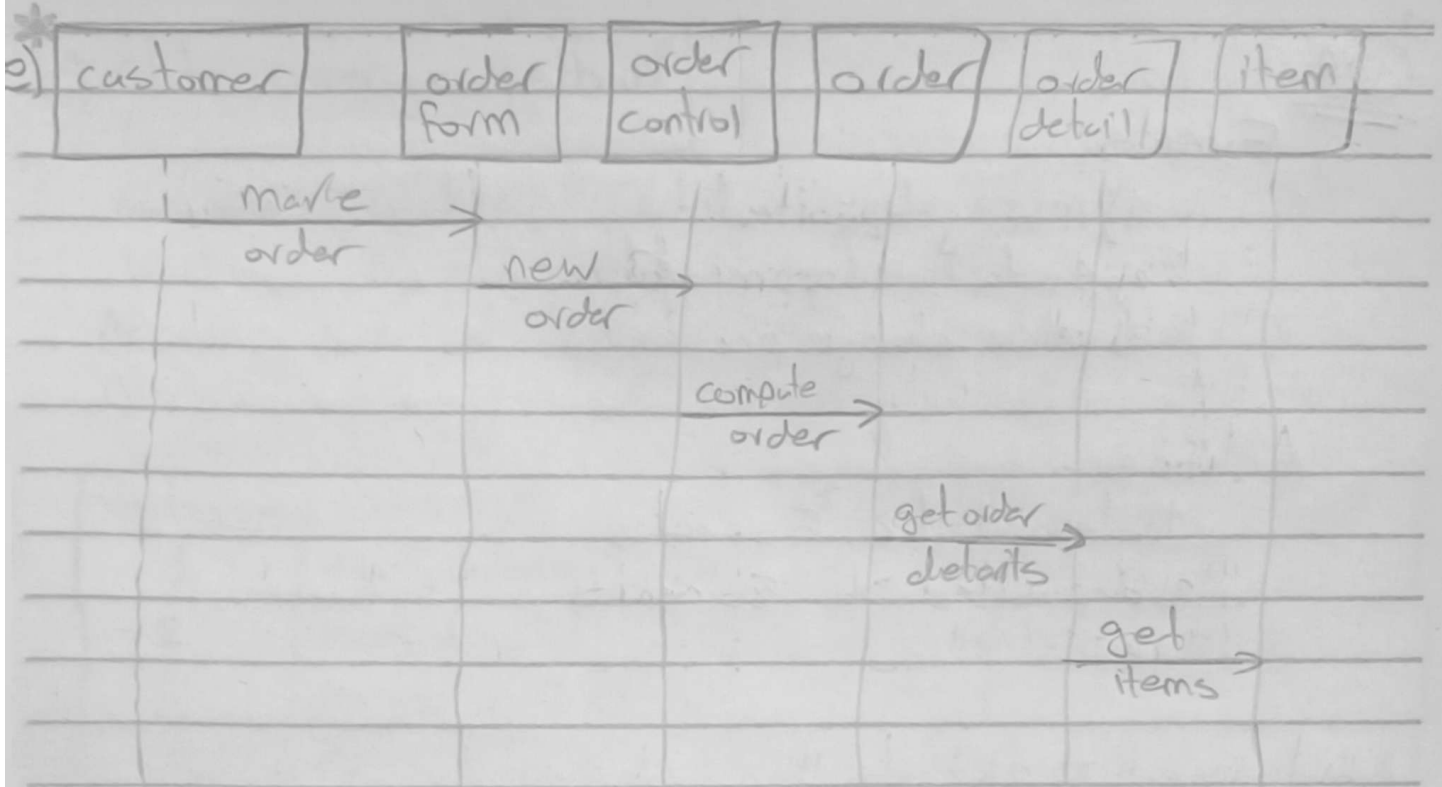 e)
customer
order
form
order
control
order
order
detail
item
make
order
new
order
compute
order
get order
details
get
items